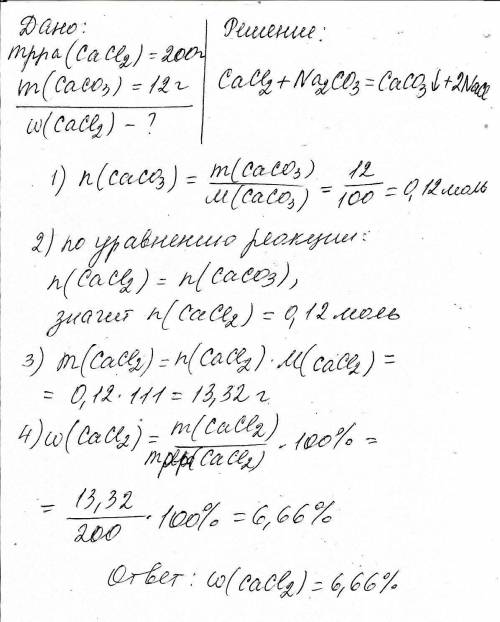 Дано:
mрра(CaCl₂)=200г
m(CaCO₃)=12г
w(CaCl₂) - ?
Решение:
CaCl₂+Na₂CO₃=CaCO₃↓+2NaCl
1) n(CaCO₃) = m(CaCO₃)/M(CaCO₃) = 12/100 = 0,12 моль
2) по уравнению реакции:
n(CaCl₂) = n(CaCO₃),
значит n(CaCl₂) = 0,12 моль
3) m(CaCl₂) = n(CaCl₂)·M(CaCl₂) =
= 0,12·111 = 13,32 г
4) w(CaCl₂) = m(CaCl₂)/mрра(CaCl₂) · 100% =
= 13,32/200 · 100% = 6,66%
Ответ: w(CaCl₂) = 6,66%